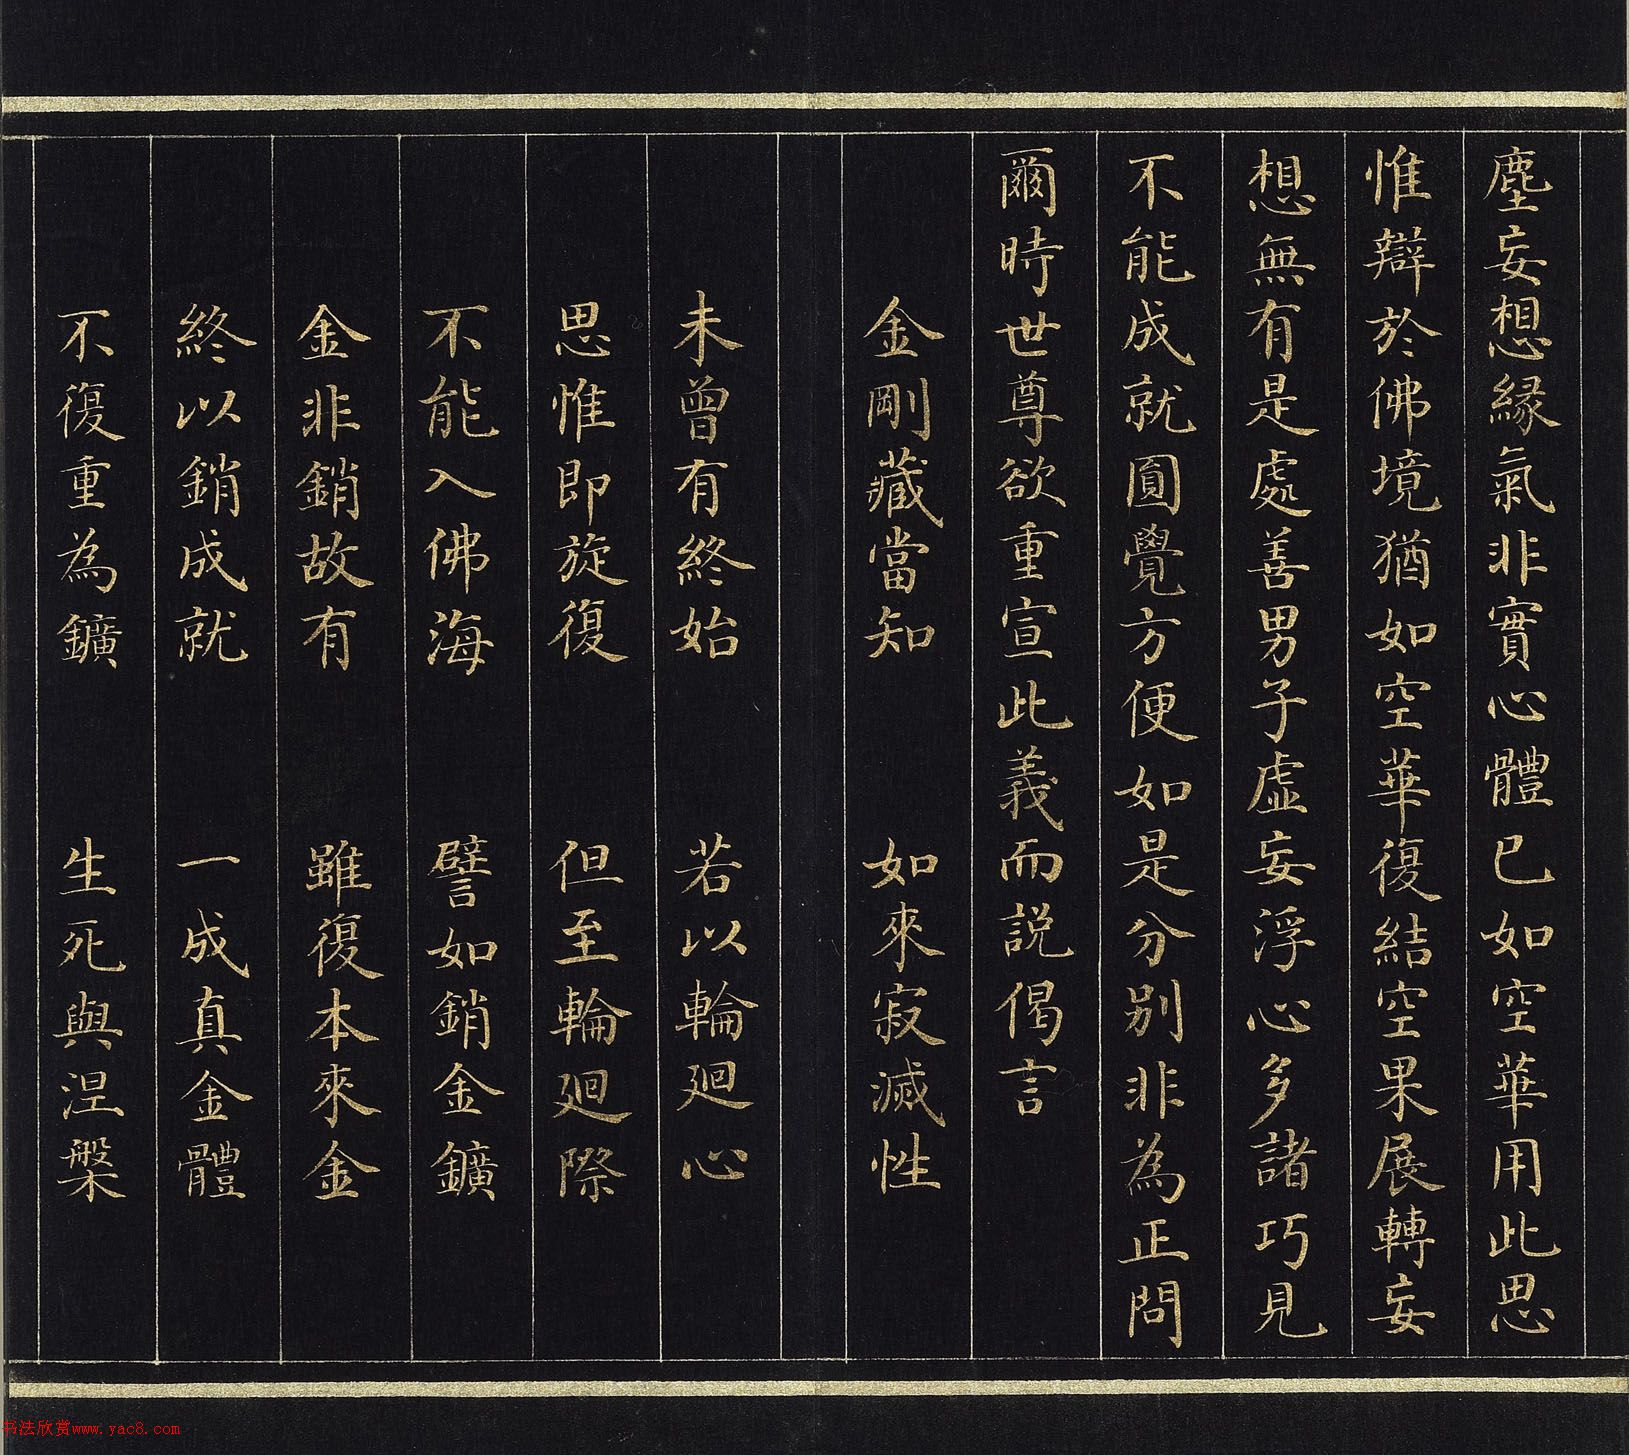 塵妄想緣氣非實心體已如空華用此思
惟辯於佛境猶如空華復結空果展轉妄
想無有是處善男子虛妄浮心多諸巧見
不能成就圓覺方便如是分別非為正問
爾時世尊欲重宣此義而説偈言
金剛藏當知 如來寂滅性
未曾有終始 若以輪迴心
思惟即旋復 但至輪迴際
不能入佛海 譬如銷金鑛
金非銷故有 雖復本來金
終以銷成就 一成真金體
不復重為鑛 生死與涅槃
书法欣赏www.yac8.com